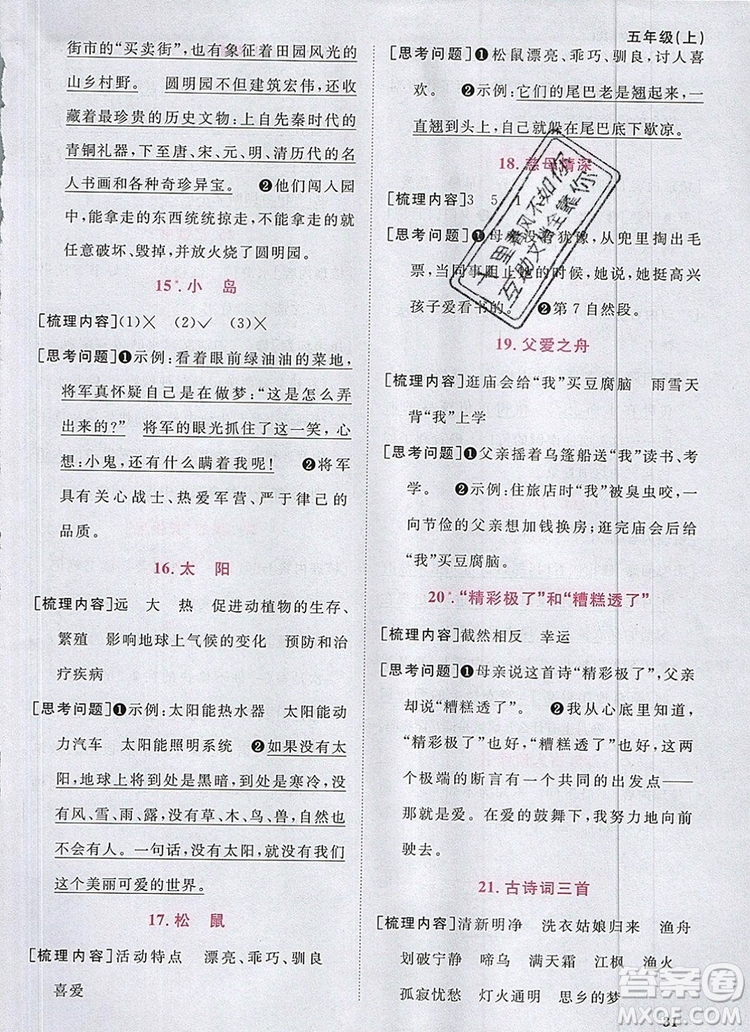 五年级(上)
街市的“买卖街”，有象征着田园风光的
山乡村野。 圆明园不但建筑宏伟，还收
藏着最珍贵的历史文物：上自先秦时代的
青铜礼器，下至唐、宋、元、明、清历代的名
人书画和各种奇珍异宝。 ❷他们闯入园
中，能拿走的东西统统掠走，拿不走的就
任意破坏、毁掉，并放火烧了圆明园。
15*.小 岛
[梳理内容](1)✕ (2)✓ (3)✕
[思考问题]❶示例：看着眼前绿油油的菜地，
将军真怀疑自己是在做梦：“这是怎么弄
出来的？” 将军的眼光抓住了这一笑，心
想：小鬼，有什么瞒着我呢！ ❷将军
具有关心战士、热爱军营、严于律己的
品质。
16.太 阳
[梳理内容]远 大 热 促进动植物的生存、
繁殖 影响地球上气候的变化 预防和治
疗疾病
[思考问题]❶示例：太阳能热水器 太阳能动
力汽车 太阳能照明系统 ❷如果没有太
阳，地球上将到处是黑暗，到处是寒冷，没
有风、雪、雨、露，没有草、木、鸟、兽，自然
也不会有人。一句话，没有太阳，就没有
这个美丽可爱的世界。
17.松 鼠
[梳理内容]活动特点 漂亮、乖巧、驯良
喜爱
[思考问题]❶松鼠漂亮、乖巧、驯良，讨人喜
欢。 ❷示例：它们的尾巴老是翘起来，一
直翘到头上，自己就躲在尾巴底下歇凉。
18.慈母情深
[梳理内容]3 5
[思考问题]❶母亲没有犹豫，从兜里掏出毛
票，当同事阻止的时候，她说，她挺高兴
孩子爱看书的。 ❷第7自然段。
十里春风不如你
互助文明全靠你
19.父爱之舟
[梳理内容]逛庙会给“我”买豆腐脑 雨雪天
背“我”上学
[思考问题]❶父亲摇着乌篷船送“我”读书、考
学。 ❷示例：住旅店时“我”被臭虫咬，
一向节俭的父亲想加钱换房；逛完庙会后
给“我”买豆腐脑。
20*.“精彩极了”和“糟糕透了”
[梳理内容]截然相反 幸运
[思考问题]❶母亲说这首诗“精彩极了”，父亲
却说“糟糕透了”。 ❷我从心底里知道，
“精彩极了”也好，“糟糕透了”也好，这两
个极端的断言有一个共同的出发点——
那就是爱。在爱的鼓舞下，我努力地向前
驶去。
21.古诗词三首
[梳理内容]清新明净 洗衣姑娘归来 渔舟
划破宁静 啼乌 满天霜 江枫 渔火
孤寂忧愁 灯火通明 思乡的梦
31
答案圈
MXQE.COM